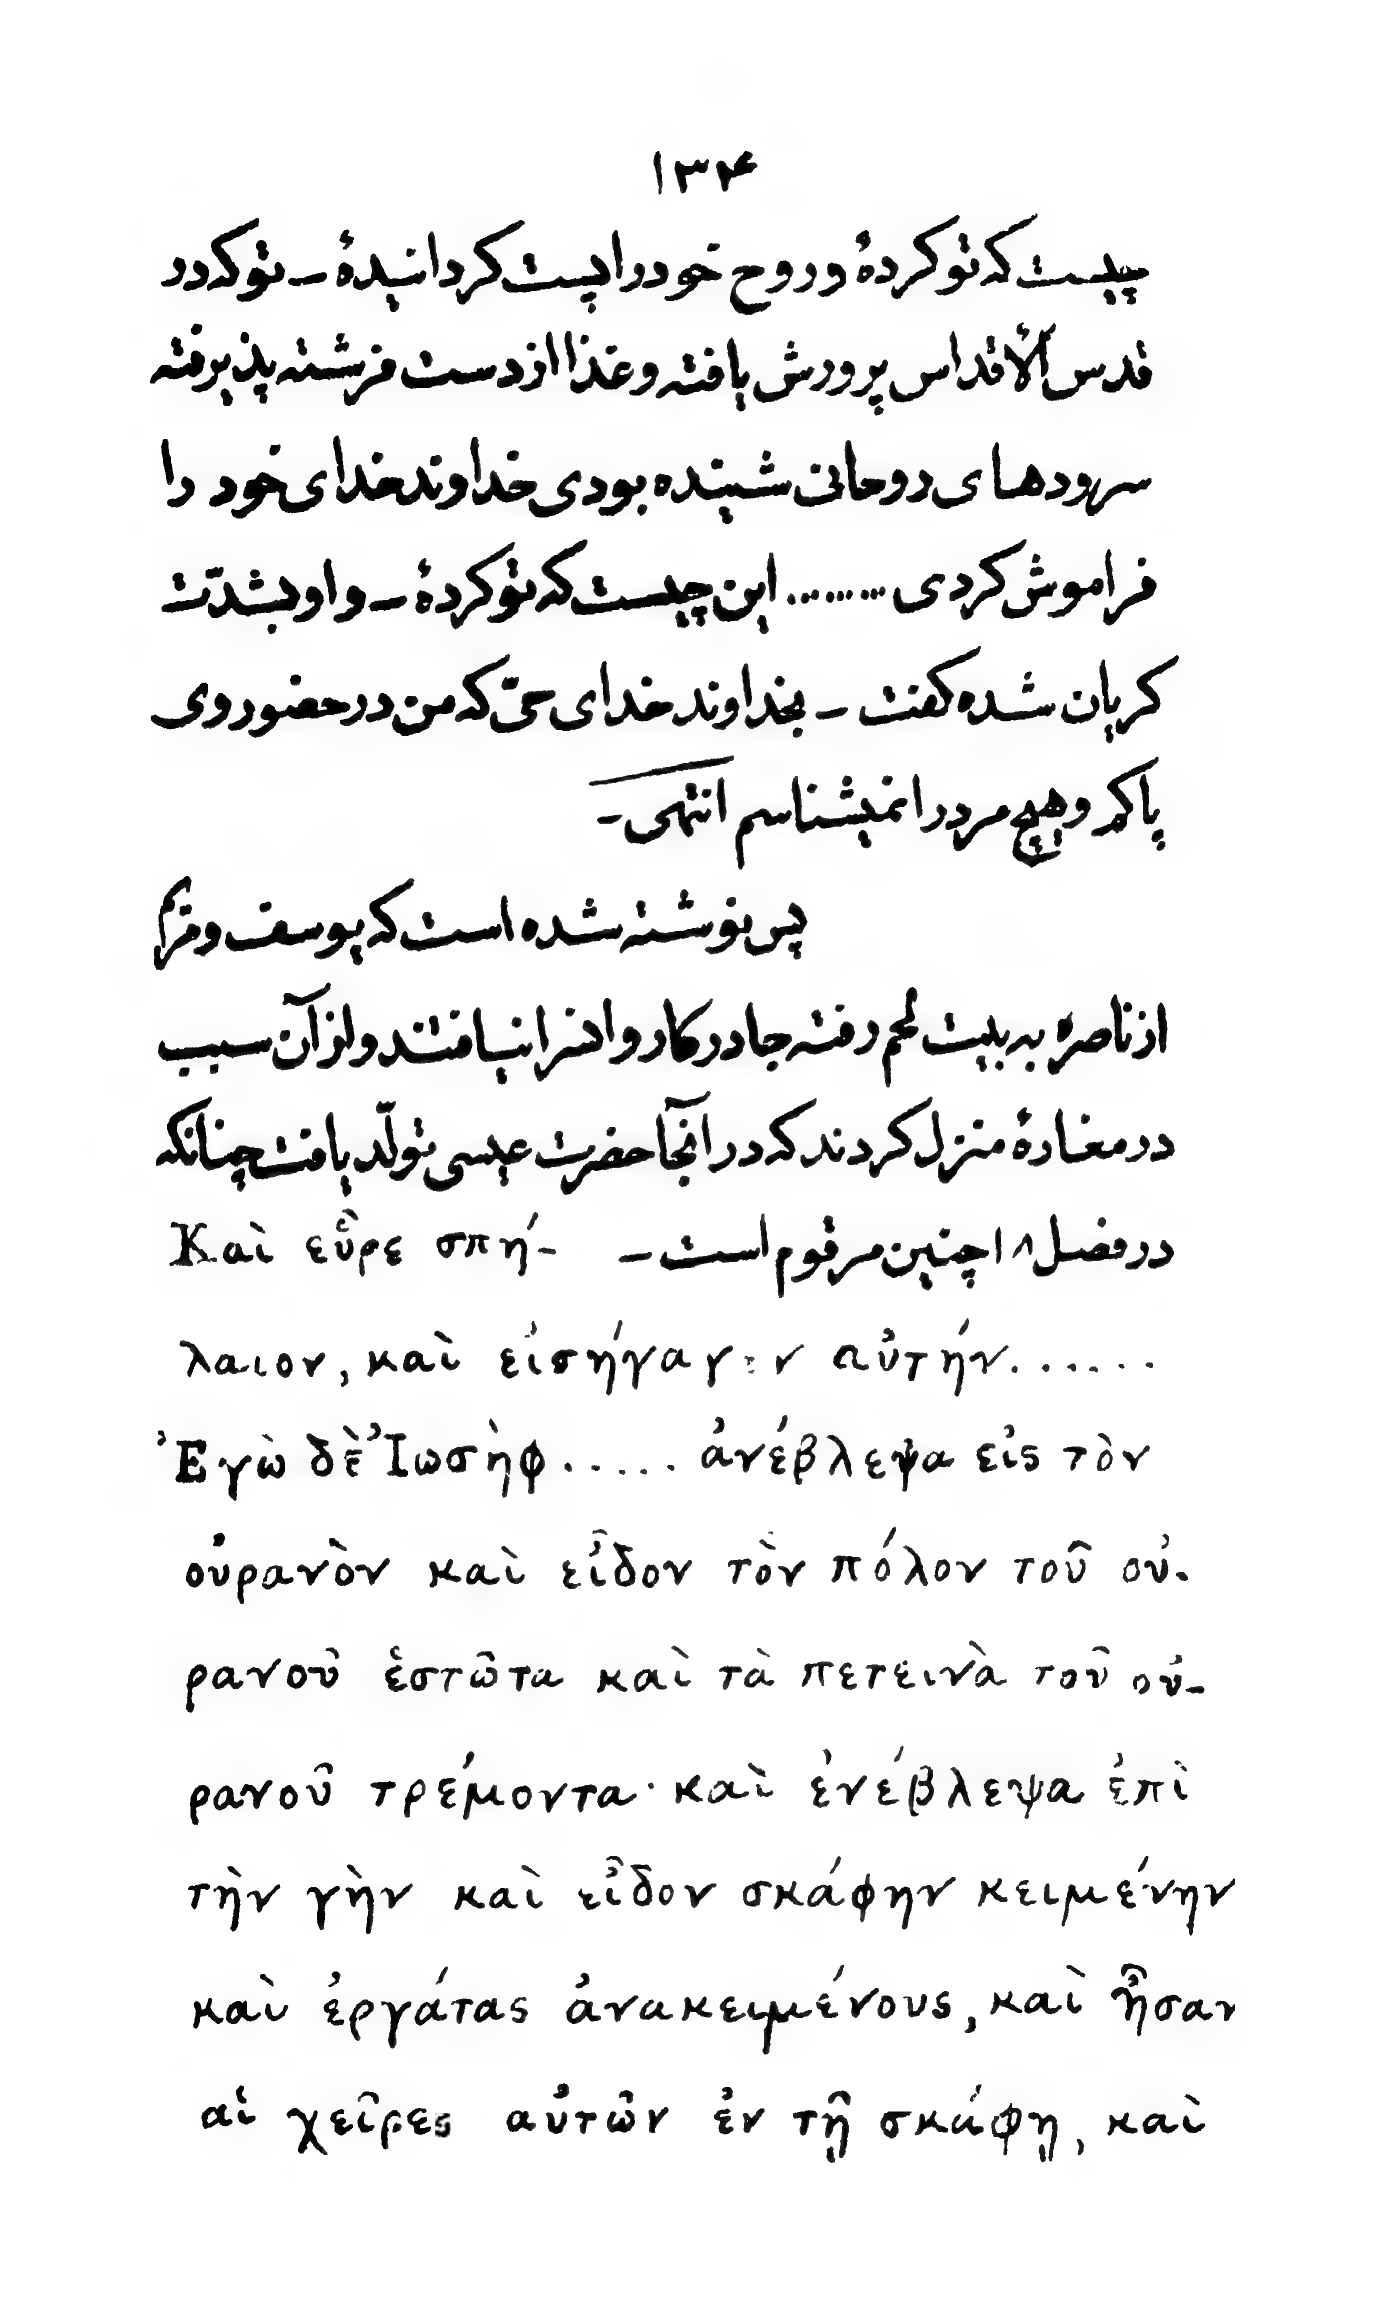 ۱۳۴
چیست که تو کردهٔ و روح خود را پست کردانیدهٔ – تو که در
قدس الاقداس پرورش یافته و غذا از دست فرشته پذیرفته
سرودهای روحانی شنیده بودی خداوند خدای خود را
فراموش کردی ......... این چیست که تو کردهٔ – و او بشدّت
کریان شده کفت – بخداوند خدای حیّ که من در حضور وی
پاکم و هیچ مرد را نمیشناسم انتهی –
پس نوشته شده است که یوسف و مریم
از ناصره به بیت لحم رفته جا در کاروانسرا نیافتند و از آن سبب
در مغارهٔ منزل کردند که در آنجا حضرت عیسی تولّد یافت چنانکه
در فصل ۱۸ چنین مرقوم است – Καὶ εὗρε σπή-
λαιον, καὶ εἰσήγαγεν αὐτήν......
Ἐγὼ δὲ Ἰωσὴφ ..... ἀνέβλεψα εἰς τὸν
οὐρανὸν καὶ εἶδον τὸν πόλον τοῦ οὐ-
ρανοῦ ἑστῶτα καὶ τὰ πετεινὰ τοῦ οὐ-
ρανοῦ τρέμοντα· καὶ ἐνέβλεψα ἐπὶ
τὴν γὴν καὶ εἶδον σκάφην κειμένην
καὶ ἐργάτας ἀνακειμένους, καὶ ἦσαν
αἱ χεῖρες αὐτῶν ἐν τῇ σκάφῃ, καὶ